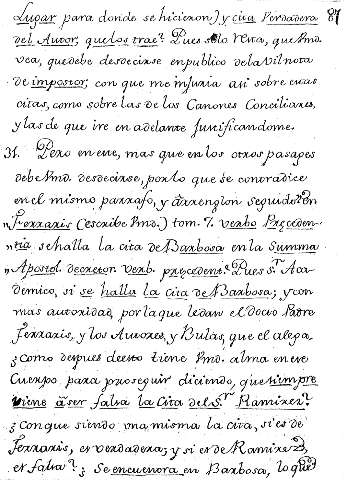 Lugar para donde se hicieron) y cita Verdadera 87
del Autor, que los trae? Pues solo resta, que Vmd.
vea, que debe desdecirse en publico de la vil nota
de impostor, con que me injuria asi sobre estas
citas, como sobre las de los Canones Conciliares,
y las de que ire en adelante justificandome.
31. Pero en este, mas que en los otros pasages
debe Vmd. desdecirse, por lo que se contradice
en el mismo parrafo, y à renglon seguido: En
"Ferraris (escribe Vmd.) tom. 7. verbo Preceden-
"tia se halla la cita de Barbosa en la Summa
"Apostol. decreton verb. precedent.ª Pues S.r Aca-
demico, si se halla la cita de Barbosa; y con
mas autoridad, por la que le dan el docto Padre
Ferraris, y los Autores, y Bulas, que el alega,
¿como despues de esto tiene Vmd. alma en este
Cuerpo para proseguir diciendo, que siempre
viene à ser falsa la Cita del S.r Ramirez?
¿Con que siendo una misma la cita, si es de
Ferraris, es verdadera; y si es de Ramirez,
es falsa? ¿Se encuentra en Barbosa, lo que